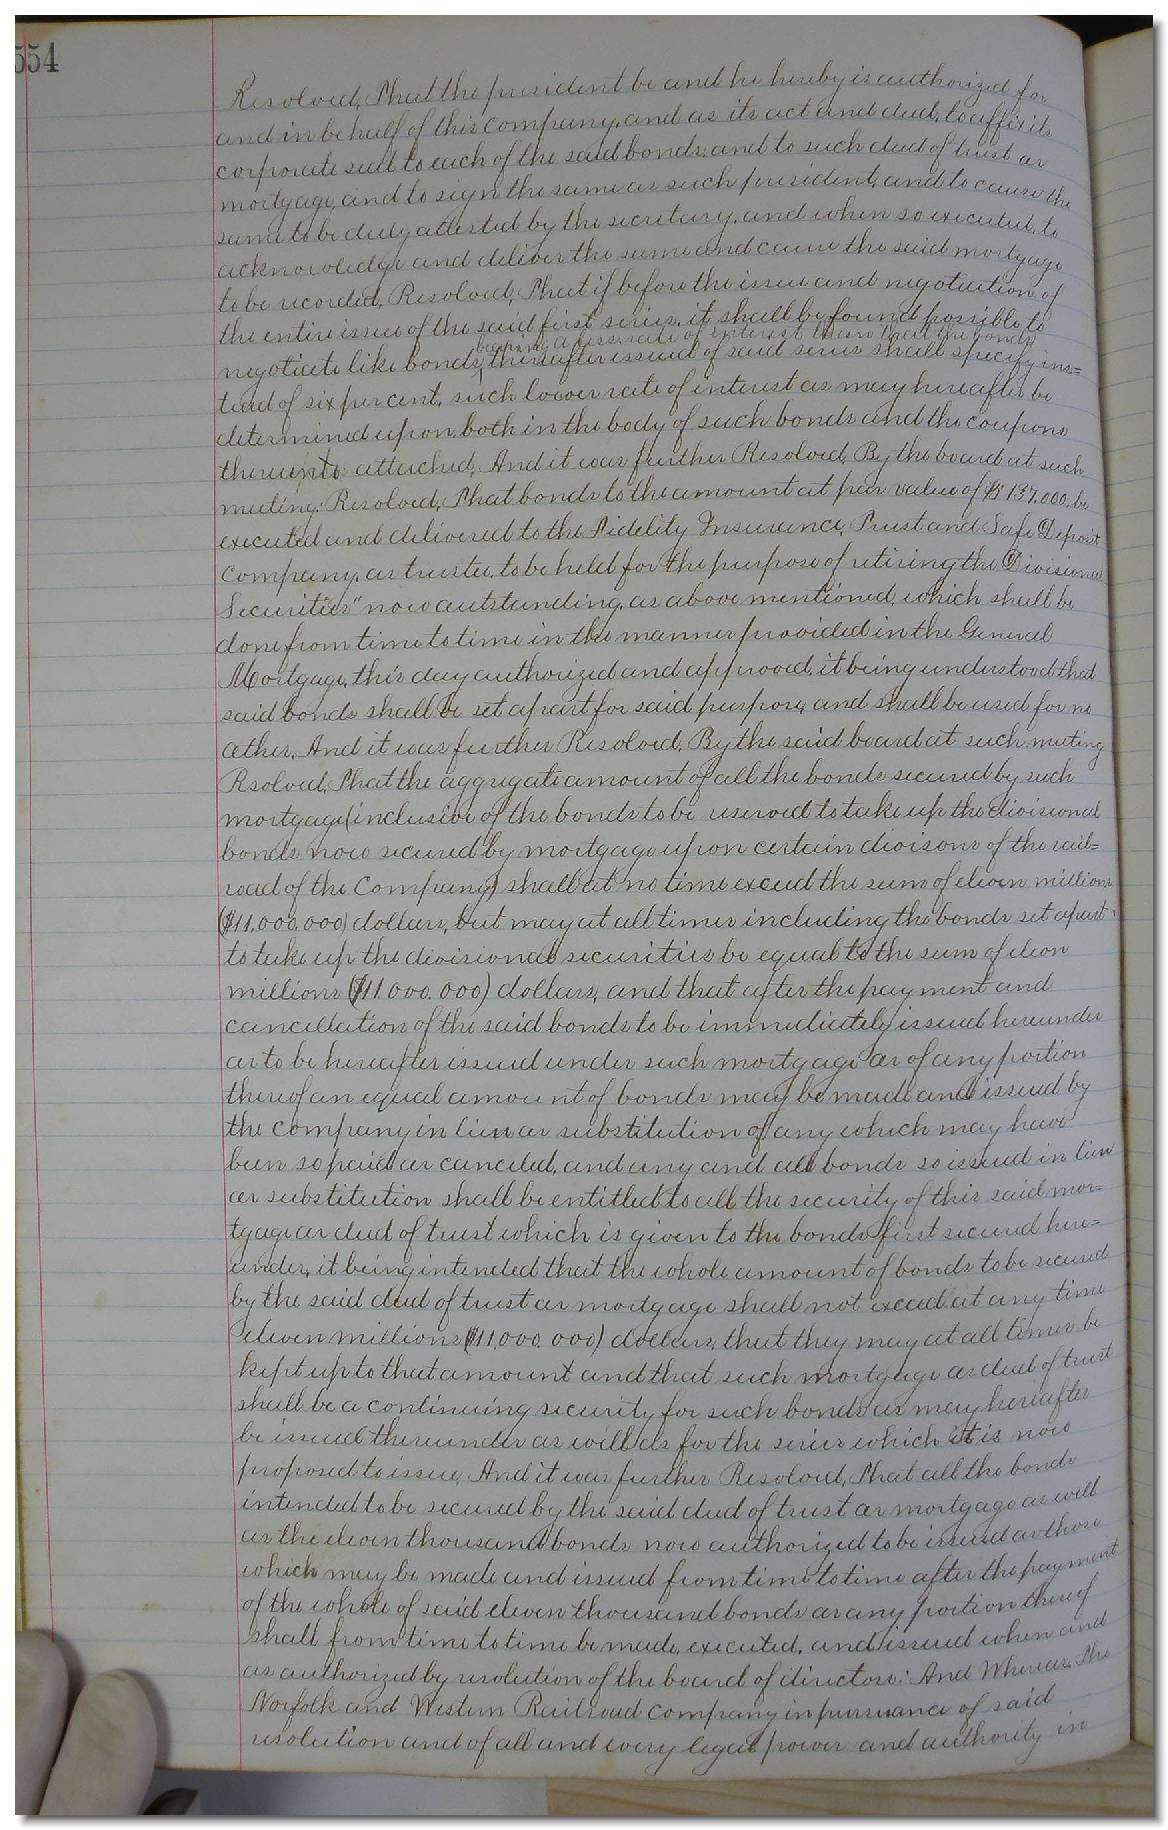 554
Resolved, That the president be and he hereby is authorized for
and in behalf of this company, and as its act and deed, to affix its
corporate seal to each of the said bonds, and to such deed of trust or
mortgage, and to sign the same as such president, and to cause the
same to be duly attested by the secretary, and when so executed, to
acknowledge and deliver the same and cause the said mortgage
to be recorded, Resolved, That if before the issue and negotiation of
the entire issue of the said first series, it shall be found possible to
bearing a less rate of interest then that the bonds
negotiate like bonds, thereafter issued of said series shall specify ins=
tead of six per cent, such lower rate of interest as may hereafter be
determined upon, both in the body of such bonds and the coupons
thereunto attached, And it was further Resolved, By the board at such
meeting: Resolved, That bonds to the amount at par value of $ 137,000, be
executed and delivered to the Fidelity Insurance, Trust and Safe Deposit
Company, as trustee, to be held for the purpose of retiring the "Divisional
Securities" now outstanding, as above mentioned, which shall be
done from time to time in the manner provided in the General
Mortgage, this day authorized and approved, it being understood that
said bonds shall be set apart for said purpose, and shall be used for no
other, And it was further Resolved, By the said board at such meeting
Rsolved, That the aggregate amount of all the bonds secured by such
mortgage (inclusive of the bonds to be reserved to take up the divisional
bonds now secured by mortgage upon certain divisons of the rail=
road of the Company) shall at no time exceed the sum of eleven millions
($11,000,000) dollars, but may at all times including the bonds set apart
to take up the divisional securities be equal to the sum of eleven
millions ($11.000.000) dollars, and that after the payment and
cancellation of the said bonds to be immediately issued hereunder
or to be hereafter issued under such mortgage or of any portion
thereof an equal amount of bonds may be made and issued by
the company in lieu or substitution of any which may have
been so paid or canceled, and any and all bonds so issued in lieu
or substitution shall be entitled to all the security of this said mor=
tgage or deed of trust which is given to the bonds first secured here=
under, it being intended that the whole amount of bonds to be secured
by the said deed of trust or mortgage shall not exceed at any time
eleven millions ($11,000.000) dollars, that they may at all times be
kept up to that amount and that such mortgage or deed of trust
shall be a continuing security for such bonds as may hereafter
be issued thereunder as well as for the series which it is now
proposed to issue, And it was further Resolved, That all the bonds
intended to be secured by the said deed of trust or mortgage as well
as the eleven thousand bonds now authorized to be issued as those
which may be made and issued from time to time after the payment
of the whole of said eleven thousand bonds or any portion thereof
shall from time to time be made, executed, and issued when and
as authorized by resolution of the board of directors: And Whereas, The
Norfolk and Western Railroad Company in pursuance of said
resolution and of all and every legal power and authority in